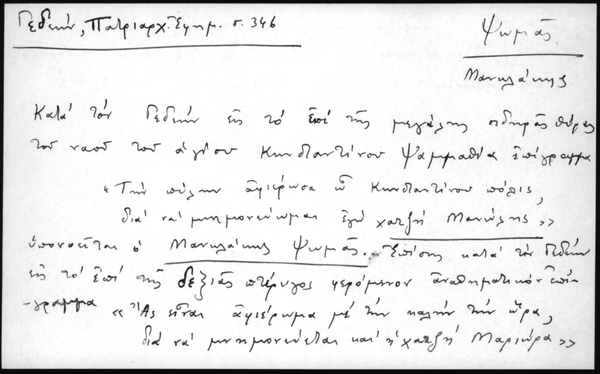 Γεδεών, Πατριαρχ. Ἐφημ. σ. 346
Ψωμᾶς
Μανωλάκης
Κατά τόν Γεδεών εἰς τό ἐπί τῆς μεγάλης σιδηρᾶς θύρας
τοῦ ναοῦ τοῦ ἁγίου Κωνσταντίνου Ψαμμαθία ἐπίγραμμα
«Τήν πύλην ἀφιέρωσα ὦ Κωνσταντίνου πόλις,
διά νά μνημονεύωμαι ἐγώ χατζῆ Μανώλης»
ὑπονοεῖται ὁ Μανωλάκης Ψωμᾶς. Ἐπίσης κατά τόν Γεδεών
εἰς τό ἐπί τῆς δεξιᾶς πτέρυγος φερόμενον ἀναθηματικόν ἐπί-
-γραμμα «Ἄς εἶναι ἀφιέρωμα μέ τήν καλήν τήν ὥρα,
διά νά μνημονεύεται καί ἡ χατζῆ Μαριώρα»